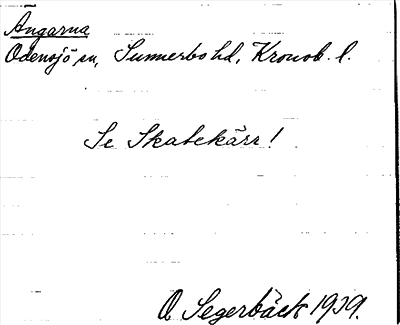 Ängarna
Odensjö sn, Sunnerbo hd, Kronob. l.
Se Skatekärr!
O Segerbäck 1929.